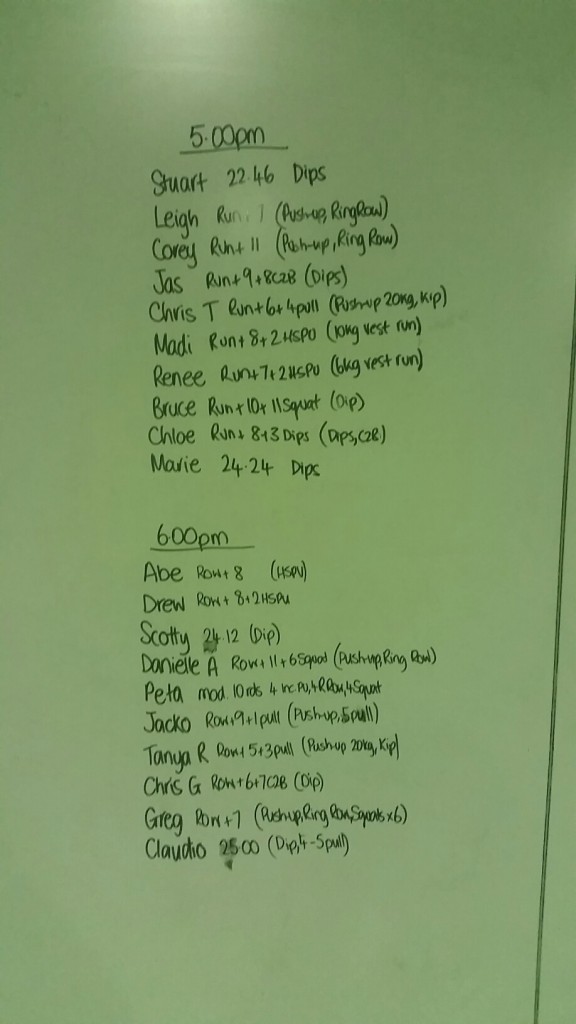 5.00pm
Stuart 22.46 Dips
Leigh Run (Push-up, Ring Row)
Corey Run+ 11 (Push-up, Ring Row)
Jas Run+9+8C2B (Dips)
Chris T Run+6+4pull (Push-up 20kg, Kip)
Madi Run+8+2HSPU (10kg vest run)
Renee Run+7+2HSPU (6kg vest run)
Bruce Run+10+11Squat (Dip)
Chloe Run+ 8+3 Dips (Dips, C2B)
Marie 24.24 Dips
6:00pm
Abe Row+8 (HSPU)
Drew Row+8+2HSPU
Scotty 24.12 (Dip)
Danielle A Row+11+6Squat (Push-up, Ring Row)
Peta mod. 10rds 4 inc PU, 4 R Row, 4 Squat
Jacko Row+9+1pull (Push-up, 5pull)
Tanya R Row+5+3pull (Push-up 20kg, Kip)
Chris G Row+6+7C2B (Dip)
Greg Row+7 (Push-up, Ring Row, Squats x6)
Claudio 25 00 (Dip, 4-5pull)